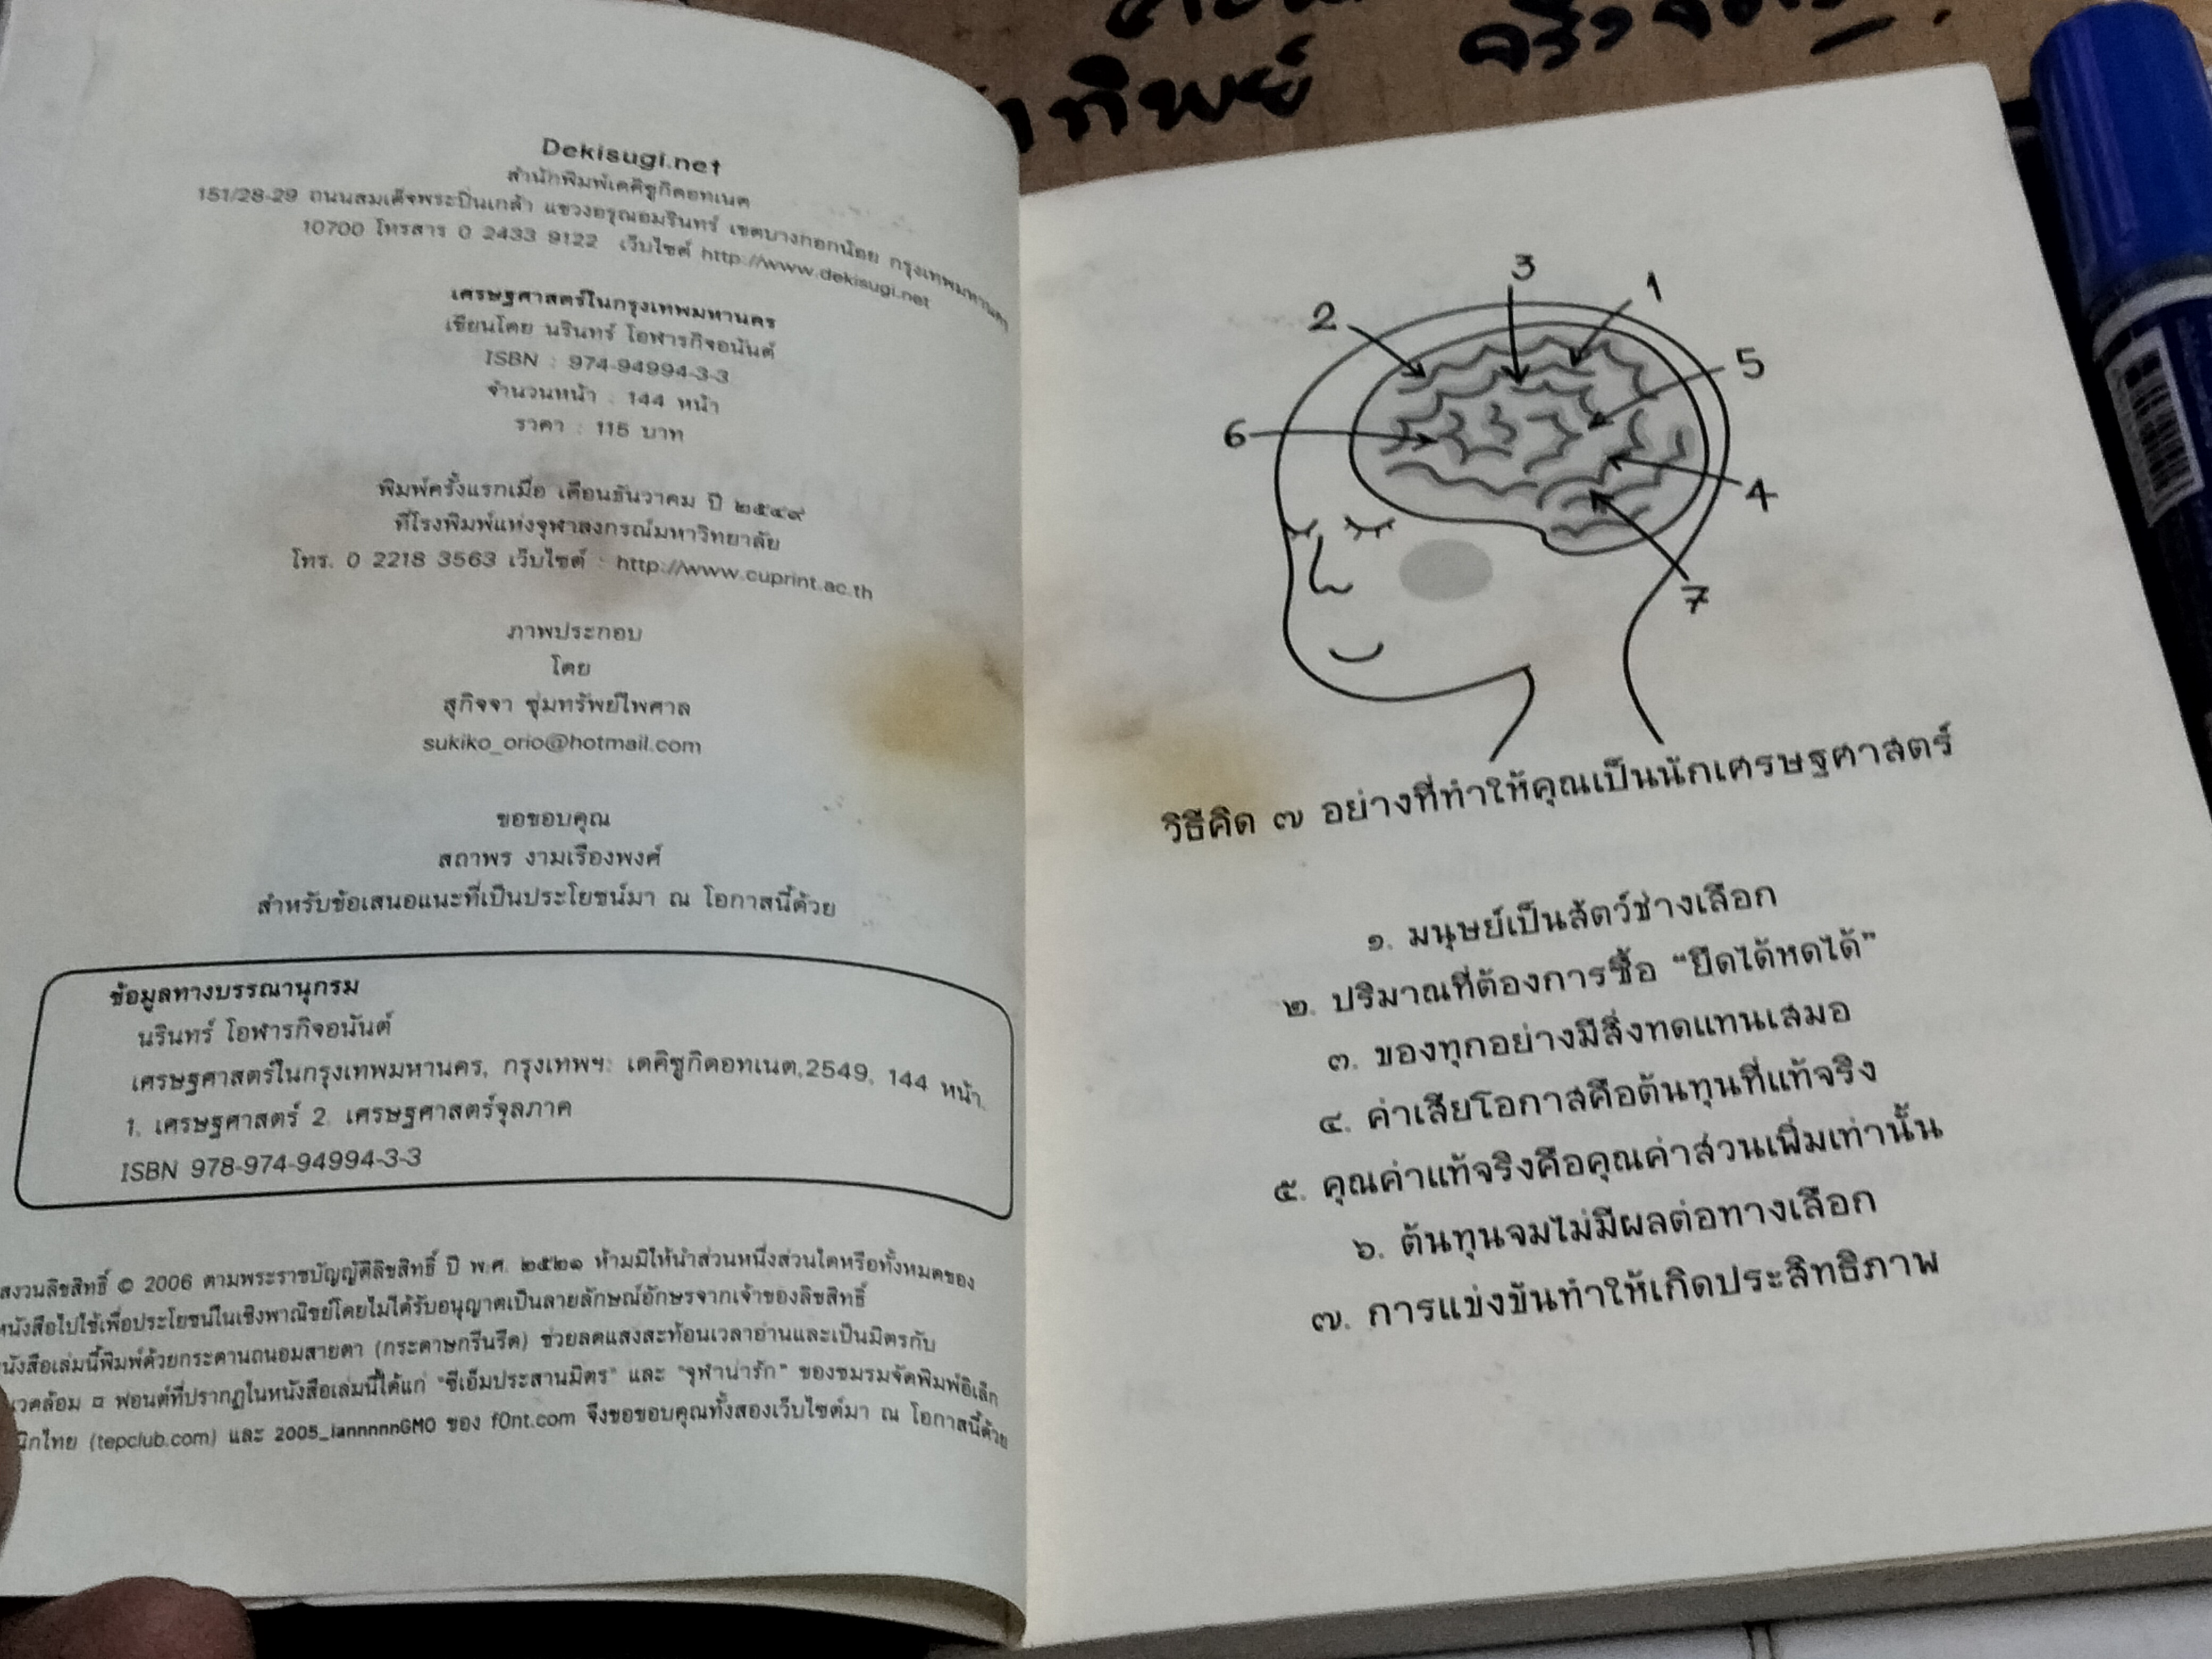 Dekisugi.net
สำนักพิมพ์เดคิซูกิดอทเนต
151/28-29 ถนนสมเด็จพระปิ่นเกล้า แขวงอรุณอมรินทร์ เขตบางกอกน้อย กรุงเทพมหานคร
10700 โทรสาร 0 2433 9122 เว็บไซต์ http://www.dekisugi.net
เศรษฐศาสตร์ในกรุงเทพมหานคร
เขียนโดย นรินทร์ โอฬารกิจอนันต์
ISBN : 974-94994-3-3
จำนวนหน้า : 144 หน้า
ราคา : 115 บาท
พิมพ์ครั้งแรกเมื่อ เดือนธันวาคม ปี ๒๕๔๙
ที่โรงพิมพ์แห่งจุฬาลงกรณ์มหาวิทยาลัย
โทร. 0 2218 3563 เว็บไซต์ : http://www.cuprint.ac.th
ภาพประกอบ
โดย
สุกิจจา ซุ่มทรัพย์ไพศาล
sukiko_orio@hotmail.com
ขอขอบคุณ
สถาพร งามเรืองพงศ์
สำหรับข้อเสนอแนะที่เป็นประโยชน์มา ณ โอกาสนี้ด้วย
ข้อมูลทางบรรณานุกรม
นรินทร์ โอฬารกิจอนันต์
เศรษฐศาสตร์ในกรุงเทพมหานคร, กรุงเทพฯ: เดคิซูกิดอทเนต,2549, 144 หน้า.
1. เศรษฐศาสตร์ 2. เศรษฐศาสตร์จุลภาค
ISBN 978-974-94994-3-3
สงวนลิขสิทธิ์ © 2006 ตามพระราชบัญญัติลิขสิทธิ์ ปี พ.ศ. ๒๕๒๑ ห้ามมิให้นำส่วนหนึ่งส่วนใดหรือทั้งหมดของ
หนังสือไปใช้เพื่อประโยชน์ในเชิงพาณิชย์โดยไม่ได้รับอนุญาตเป็นลายลักษณ์อักษรจากเจ้าของลิขสิทธิ์
หนังสือเล่มนี้พิมพ์ด้วยกระดานถนอมสายตา (กระดาษกรีนรีด) ช่วยลดแสงสะท้อนเวลาอ่านและเป็นมิตรกับ
แวดล้อม ¤ ฟอนต์ที่ปรากฏในหนังสือเล่มนี้ได้แก่ "ซีเอ็มประสานมิตร" และ "จุฬาน่ารัก" ของชมรมจัดพิมพ์อิเล็ก
นิกไทย (tepclub.com) และ 2005_iannnnnGMO ของ f0nt.com จึงขอขอบคุณทั้งสองเว็บไซต์มา ณ โอกาสนี้ด้วย
ทิพย์
3
1
2
5
6
4
7
วิธีคิด ๗ อย่างที่ทำให้คุณเป็นนักเศรษฐศาสตร์
๑. มนุษย์เป็นสัตว์ช่างเลือก
๒. ปริมาณที่ต้องการซื้อ "ยืดได้หดได้"
๓. ของทุกอย่างมีสิ่งทดแทนเสมอ
๔. ค่าเสียโอกาสคือต้นทุนที่แท้จริง
๕. คุณค่าแท้จริงคือคุณค่าส่วนเพิ่มเท่านั้น
๖. ต้นทุนจมไม่มีผลต่อทางเลือก
๗. การแข่งขันทำให้เกิดประสิทธิภาพ